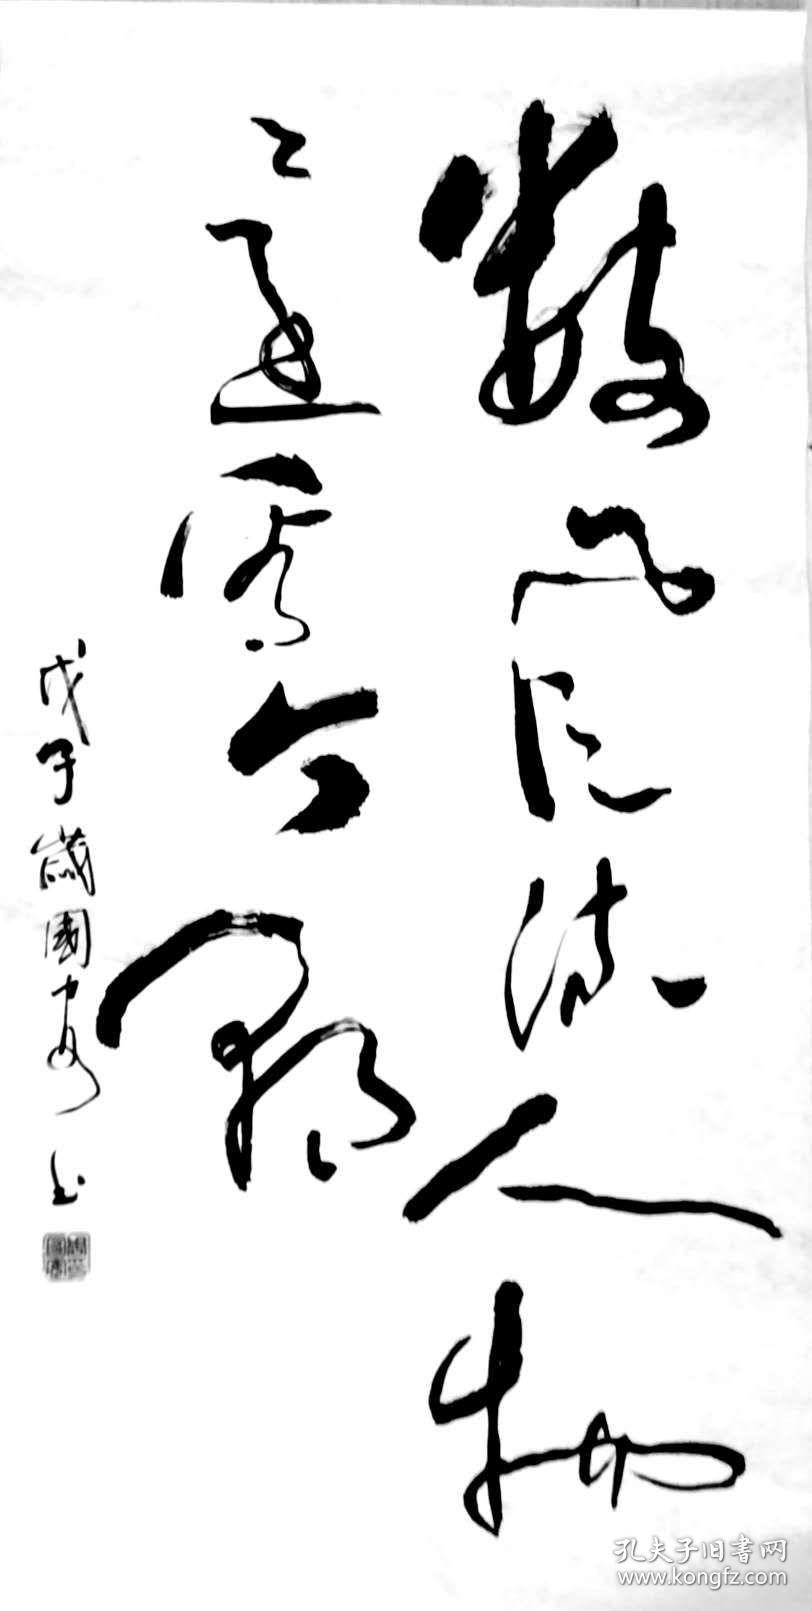 数风流人物
还看今朝
戊子岁国
书
孔夫子旧书网
www.kongfz.com